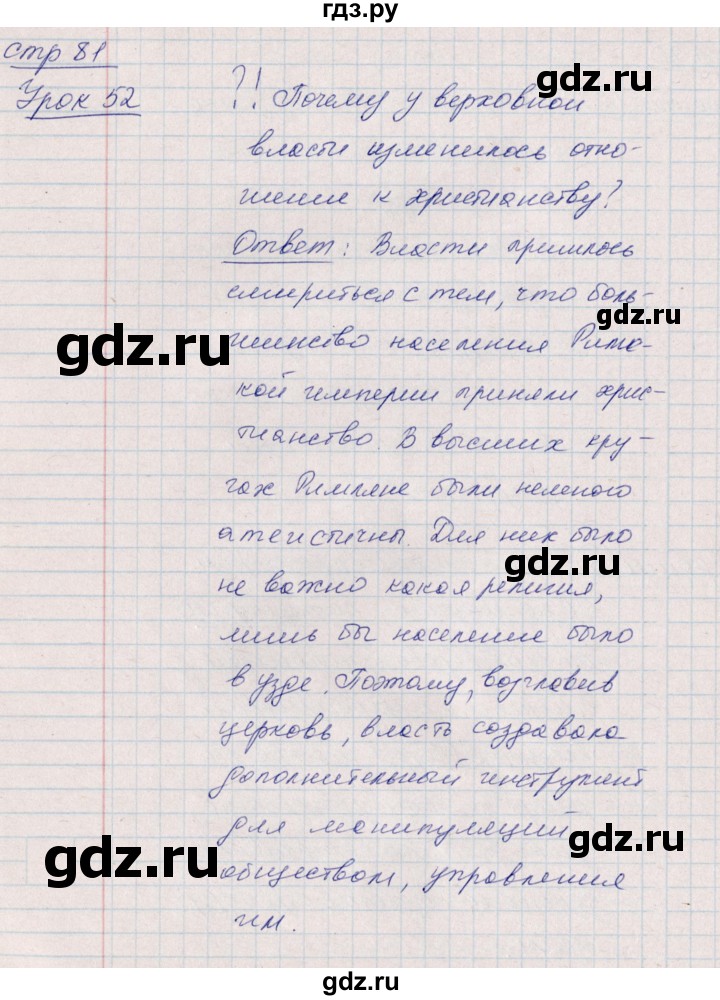 гдз.ру
стр 81
Урок 52
?! Почему у верховной
власти изменилось отно-
шение к христианству?
Ответ: Власти пришлось
смириться с тем, что боль-
gdz.ru
шинство населения Римс-
gdz.ru
кой империи приняли хрис-
тианство. В высших кру-
гах Римляне были немного
атеистичны. Для них было
gdz.ru
не важно какая религия,
лишь бы население было
в узде. Поэтому, возглавив
церковь, власть создавала
дополнительный инструмент
для манипуляций
gdz.ru
gdz.ru
обществом, управления
им.
gdz.ru